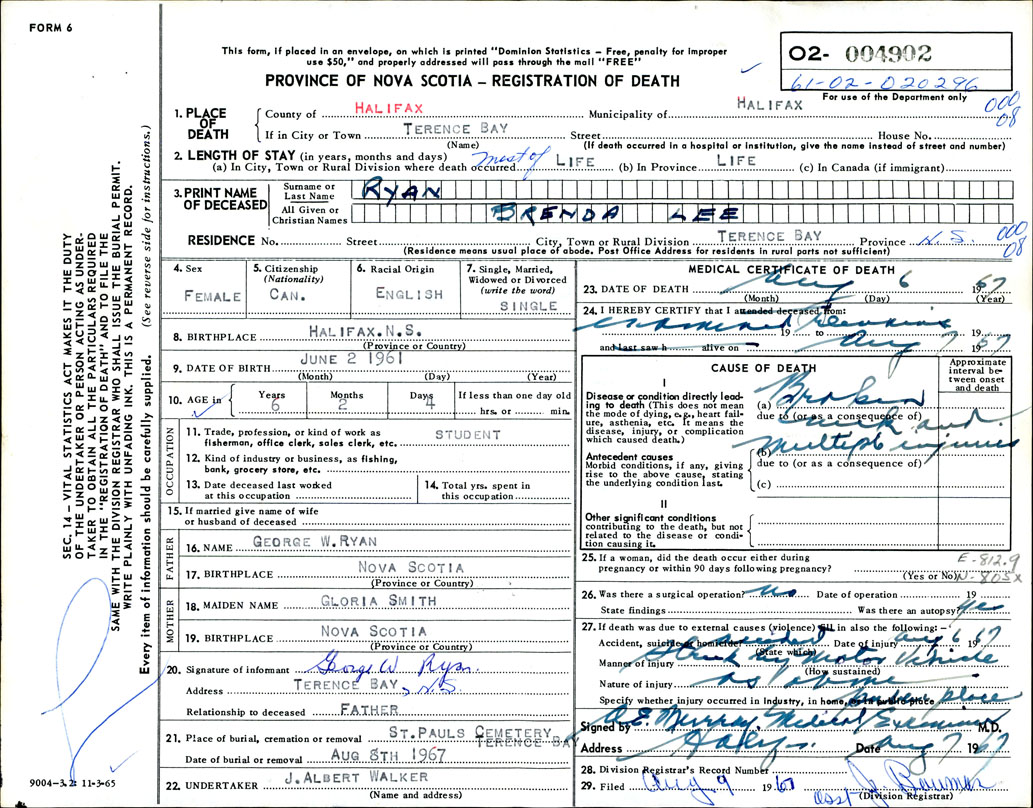 FORM 6
This form, if placed in an envelope, on which is printed "Dominion Statistics – Free, penalty for improper
use $50," and properly addressed will pass through the mail "FREE"
PROVINCE OF NOVA SCOTIA – REGISTRATION OF DEATH
02- 004902
61-02-020296
For use of the Department only
000
08
SEC. 14 – VITAL STATISTICS ACT MAKES IT THE DUTY
OF THE UNDERTAKER OR PERSON ACTING AS UNDER-
TAKER TO OBTAIN ALL THE PARTICULARS REQUIRED
IN THE "REGISTRATION OF DEATH" AND TO FILE THE
SAME WITH THE DIVISION REGISTRAR WHO SHALL ISSUE THE BURIAL PERMIT.
WRITE PLAINLY WITH UNFADING INK. THIS IS A PERMANENT RECORD.
Every item of information should be carefully supplied. (See reverse side for instructions.)
1. PLACE OF DEATH County of HALIFAX Municipality of HALIFAX
If in City or Town TERENCE BAY Street House No.
(Name) (If death occurred in a hospital or institution, give the name instead of street and number)
2. LENGTH OF STAY (in years, months and days)
(a) In City, Town or Rural Division where death occurred most of LIFE (b) In Province LIFE (c) In Canada (if immigrant)
3. PRINT NAME OF DECEASED Surname or Last Name RYAN
All Given or Christian Names BRENDA LEE
RESIDENCE No. Street City, Town or Rural Division TERENCE BAY Province N.S. 000 08
(Residence means usual place of abode. Post Office Address for residents in rural parts not sufficient)
4. Sex FEMALE
5. Citizenship (Nationality) CAN.
6. Racial Origin ENGLISH
7. Single, Married, Widowed or Divorced (write the word) SINGLE
8. BIRTHPLACE HALIFAX.N.S.
(Province or Country)
9. DATE OF BIRTH JUNE 2 1961
(Month) (Day) (Year)
10. AGE in Years 6 Months 2 Days 4 If less than one day old hrs. or min.
OCCUPATION
11. Trade, profession, or kind of work as fisherman, office clerk, sales clerk, etc. STUDENT
12. Kind of industry or business, as fishing, bank, grocery store, etc.
13. Date deceased last worked at this occupation
14. Total yrs. spent in this occupation
15. If married give name of wife or husband of deceased
FATHER
16. NAME GEORGE W.RYAN
17. BIRTHPLACE NOVA SCOTIA
(Province or Country)
MOTHER
18. MAIDEN NAME GLORIA SMITH
19. BIRTHPLACE NOVA SCOTIA
(Province or Country)
20. Signature of informant George W Ryan.
Address TERENCE BAY, N.S.
Relationship to deceased FATHER
21. Place of burial, cremation or removal ST.PAULS CEMETERY
TERENCE BAY
Date of burial or removal AUG 8TH 1967
22. UNDERTAKER J.ALBERT WALKER
(Name and address)
9004-3.2: 11-3-65
MEDICAL CERTIFICATE OF DEATH
23. DATE OF DEATH Aug 6 1967
(Month) (Day) (Year)
24. I HEREBY CERTIFY that I attended deceased from:
examined remains 19 to Aug 7 1967
and last saw h alive on 19
CAUSE OF DEATH
Approximate interval between onset and death
I
Disease or condition directly leading to death (This does not mean the mode of dying, e.g., heart failure, asthenia, etc. It means the disease, injury, or complication which caused death.)
(a) Broken
due to (or as a consequence of)
neck and
multiple injuries
Antecedent causes
Morbid conditions, if any, giving rise to the above cause, stating the underlying condition last.
(b)
due to (or as a consequence of)
(c)
II
Other significant conditions contributing to the death, but not related to the disease or condition causing it.
25. If a woman, did the death occur either during pregnancy or within 90 days following pregnancy?
(Yes or No)
E-812.9
N-805x
26. Was there a surgical operation? No Date of operation 19
State findings Was there an autopsy? yes
27. If death was due to external causes (violence) fill in also the following: –
Accident, suicide or homicide? accident Date of injury Aug 6 1967
(State which)
Manner of injury Struck by Motor Vehicle
(How sustained)
Nature of injury as above
Specify whether injury occurred in Industry, in home, or in public place place
Signed by Murray, Medical Examiner M.D.
Address Date Aug 7 1967
28. Division Registrar's Record Number
29. Filed Aug 9 1967 Asst J. Bowman
(Division Registrar)